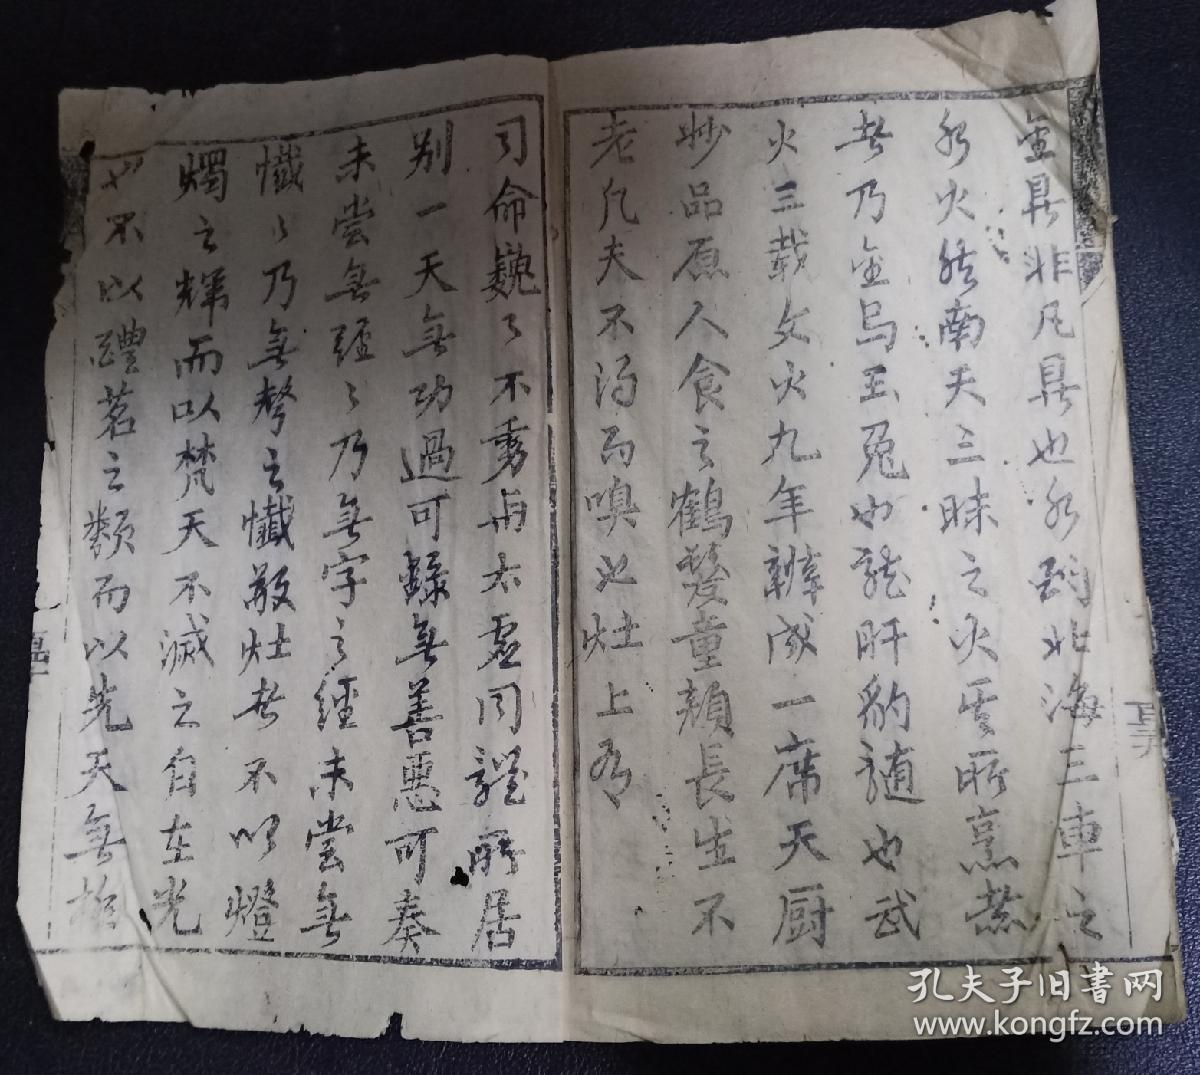 金具非凡具也水到北海三車之
水火然南天三昧之火其所烹煮
者乃金烏玉兔也龍肝豹髓也武
火三載文火九年辦成一席天厨
妙品原人食之鶴髮童顏長生不
老凡夫不得而嗅也灶上有
司命巍〻不動与太虚同體所居
别一天無功過可錄無善惡可奏
未嘗無經〻乃無字之經未嘗無
懺〻乃無聲之懺敬灶者不以燈
燭之輝而以梵天不滅之自在光
也不以醴茗之類而以先天無
孔夫子旧书网
www.kongfz.com